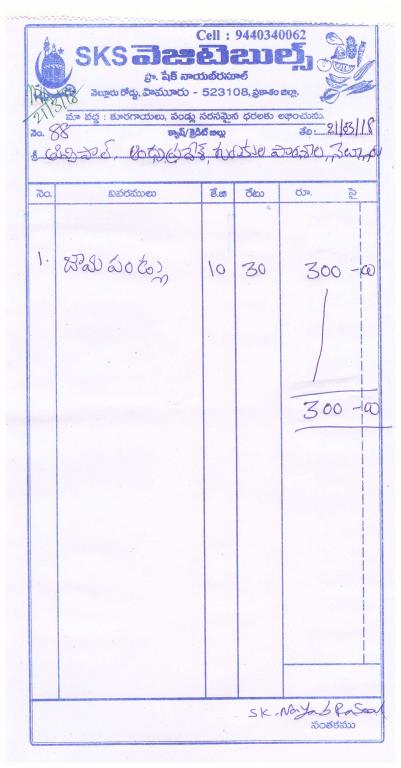 Cell : 9440340062
SKS వెజిటెబుల్స్
ప్రొ. షేక్ నాయబ్‌రసూల్
నెల్లూరు రోడ్డు, పామూరు - 523108, ప్రకాశం జిల్లా.
21/3/18
మా వద్ద : కూరగాయలు, పండ్లు సరసమైన ధరలకు లభించును.
నెం. 88 క్యాష్/క్రెడిట్ బిల్లు తేది: 21/03/18
శ్రీ ప్రిన్సిపాల్, ఆంధ్రప్రదేశ్ గురుకుల పాఠశాల,
నెం. వివరములు కే.జి రేటు రూ. పై
1. జామ పండ్లు 10 30 300-00
300-00
SK. Nayab Rasool
సంతకము